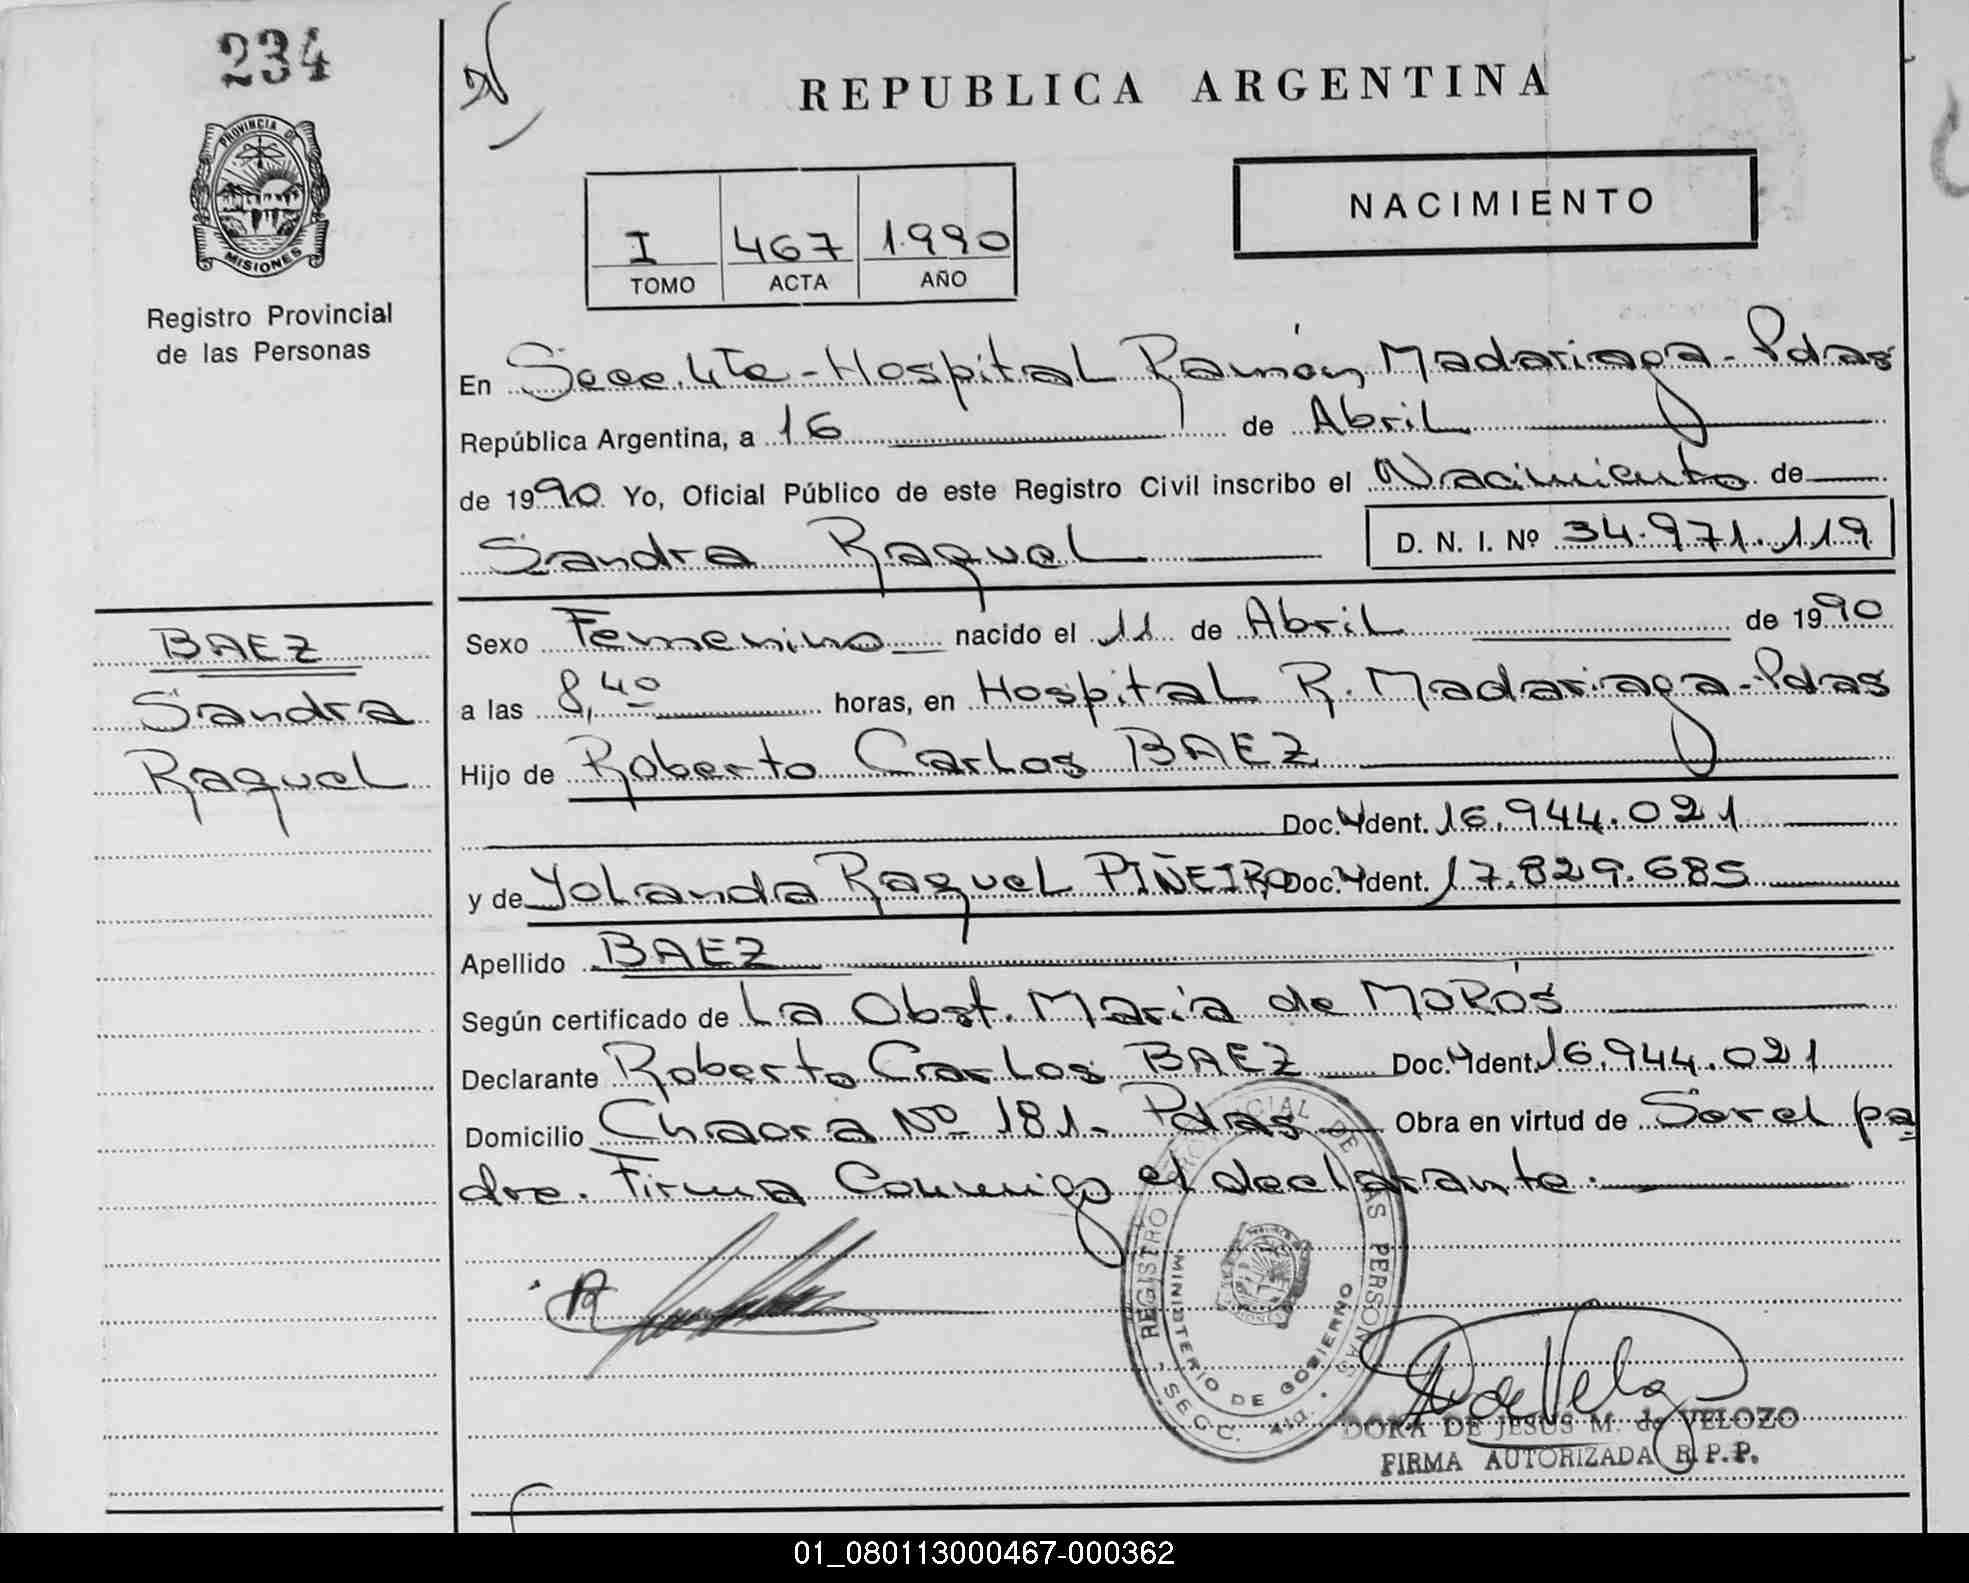 234
REPUBLICA ARGENTINA
PROVINCIA DE
MISIONES
Registro Provincial
de las Personas
I 467 1.990
TOMO ACTA AÑO
NACIMIENTO
En Secc. 4ta - Hospital Ramón Madariaga - Pdas
República Argentina, a 16 de Abril
de 1990. Yo, Oficial Público de este Registro Civil inscribo el Nacimiento de
Sandra Raquel D. N. I. Nº 34.971.119
BAEZ
Sandra
Raquel
Sexo Femenino nacido el 11 de Abril de 1990
a las 8,40 horas, en Hospital R. Madariaga - Pdas
Hijo de Roberto Carlos BAEZ
Doc. Ident. 16.944.021
y de Yolanda Raquel PIÑEIRO Doc. Ident. 17.829.685
Apellido BAEZ
Según certificado de La Obst. María de MoRós
Declarante Roberto Carlos BAEZ Doc. Ident. 16.944.021
Domicilio Chacra Nº 181 - Pdas Obra en virtud de Ser el pa
dre. Firma Conmigo el declarante.
REGISTRO PROVINCIAL DE LAS PERSONAS
MINISTERIO DE GOBIERNO
SECC. 4ta.
DORA DE JESUS M. de VELOZO
FIRMA AUTORIZADA R.P.P.
01_080113000467-000362